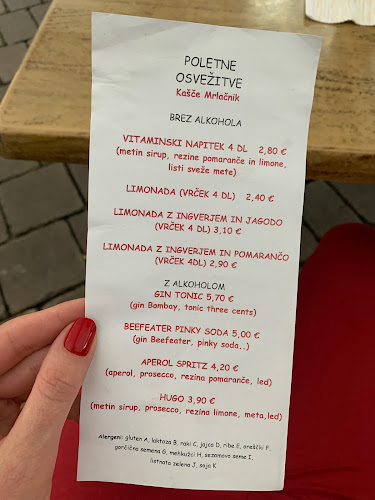 POLETNE
OSVEŽITVE
Kašče Mrlačnik
BREZ ALKOHOLA
VITAMINSKI NAPITEK 4 DL 2,80 €
(metin sirup, rezine pomaranče in limone,
listi sveže mete)
LIMONADA (VRČEK 4 DL) 2,40 €
LIMONADA Z INGVERJEM IN JAGODO
(VRČEK 4 DL) 3,10 €
LIMONADA Z INGVERJEM IN POMARANČO
(VRČEK 4DL) 2,90 €
Z ALKOHOLOM
GIN TONIC 5,70 €
(gin Bombay, tonic three cents)
BEEFEATER PINKY SODA 5,00 €
(gin Beefeater, pinky soda..)
APEROL SPRITZ 4,20 €
(aperol, prosecco, rezina pomaranče, led)
HUGO 3,90 €
(metin sirup, prosecco, rezina limone, meta,led)
Alergeni: gluten A, laktoza B, raki C, jajca D, ribe E, oreščki F,
gorčična semena G, mehkužci H, sezamovo seme I,
listnata zelena J, soja K